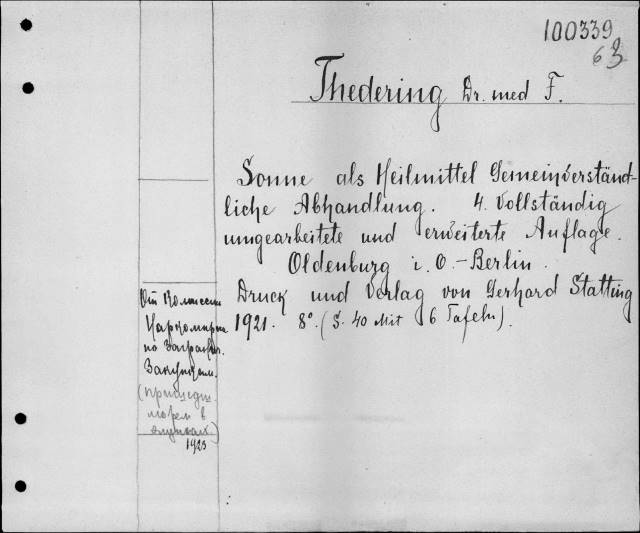 100339
63
Thedering Dr. med F.
Sonne als Heilmittel Gemeinverständ-
liche Abhandlung. 4. Vollständig
umgearbeitete und erweiterte Auflage.
Oldenburg i. O.-Berlin.
Druck und Verlag von Gerhard Statting
1921. 8°. (S. 40 Mit 6 Tafeln).
От Комиссии
Наркомпроса
по Заграничн.
Закупкам.
морем в
1923